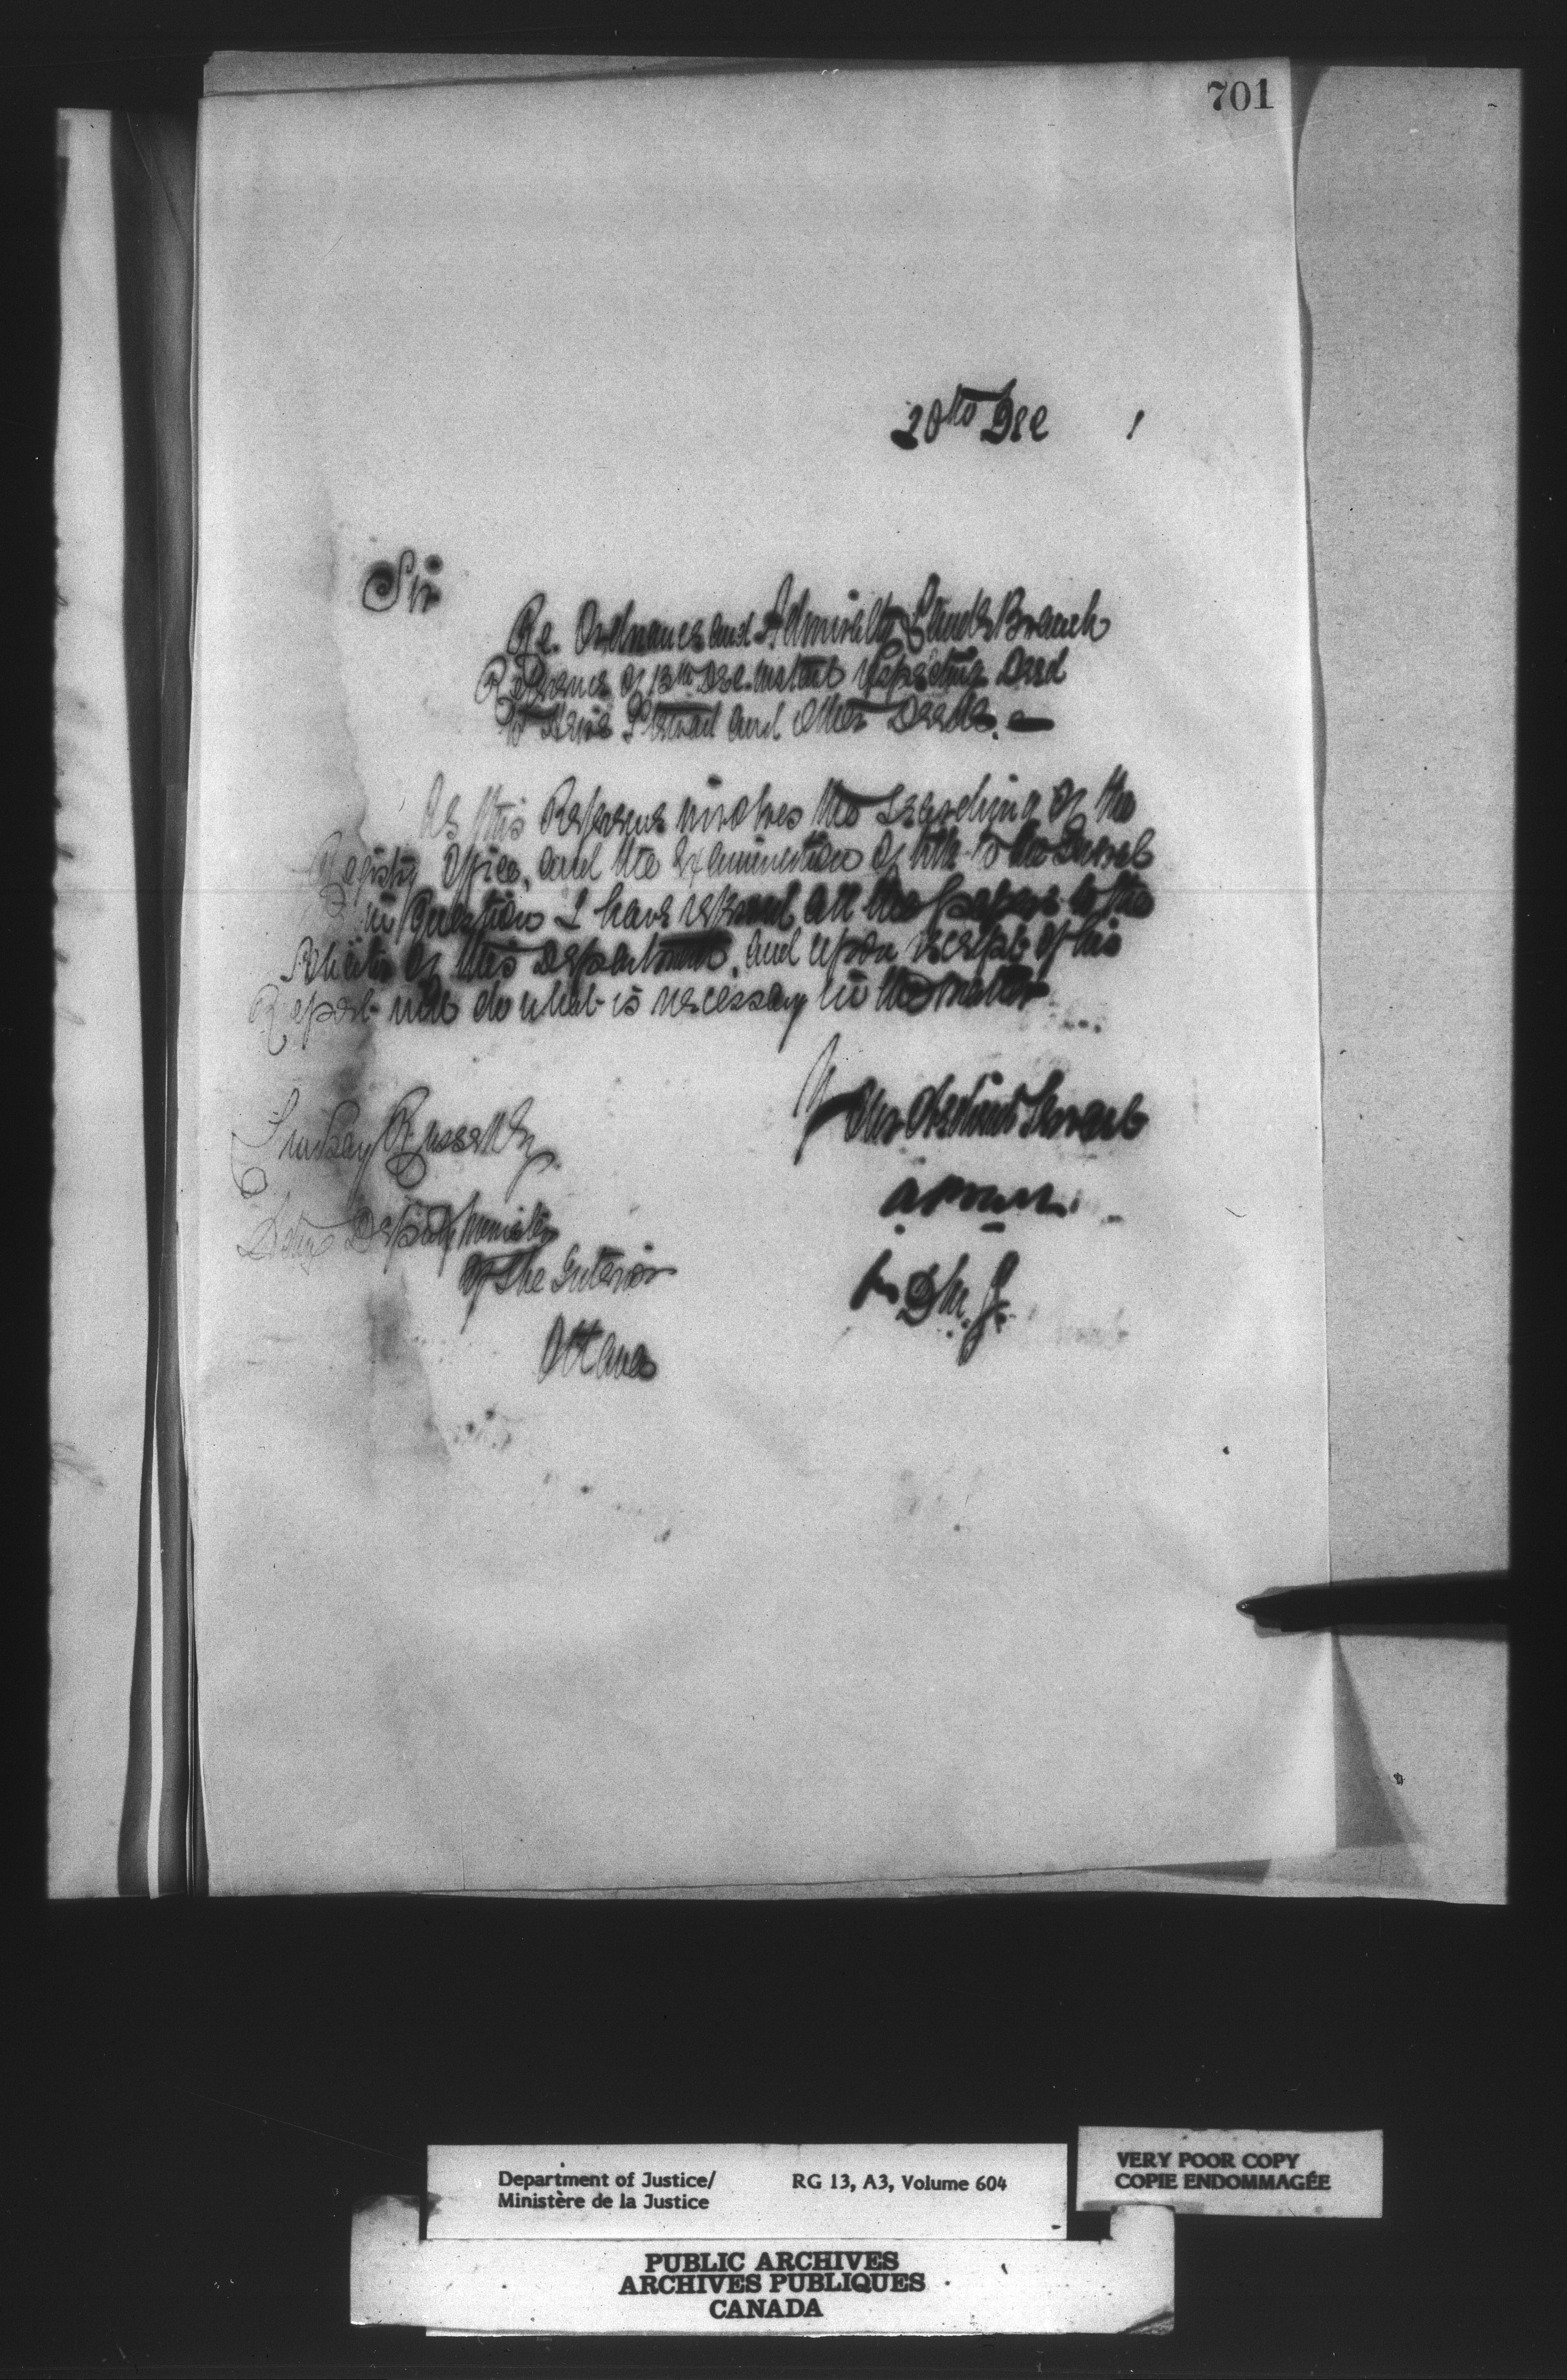 701
20th Dec 1
Sir
Re. Ordnance and Admiralty Lands Branch
Reference of 13th Dec. instant respecting Deed
to and other Deeds.
As this Reference involves the searching of the
Registry Office, and the examination of title to the
in question I have referred all the papers to the
Solicitor of this Department, and upon receipt of his
Report will do what is necessary in the matter
Your Obedient Servant
Lindsay Russell Esq
Deputy Minister
of the Interior
Ottawa
for D.M.J.
Department of Justice/
Ministère de la Justice
RG 13, A3, Volume 604
VERY POOR COPY
COPIE ENDOMMAGÉE
PUBLIC ARCHIVES
ARCHIVES PUBLIQUES
CANADA